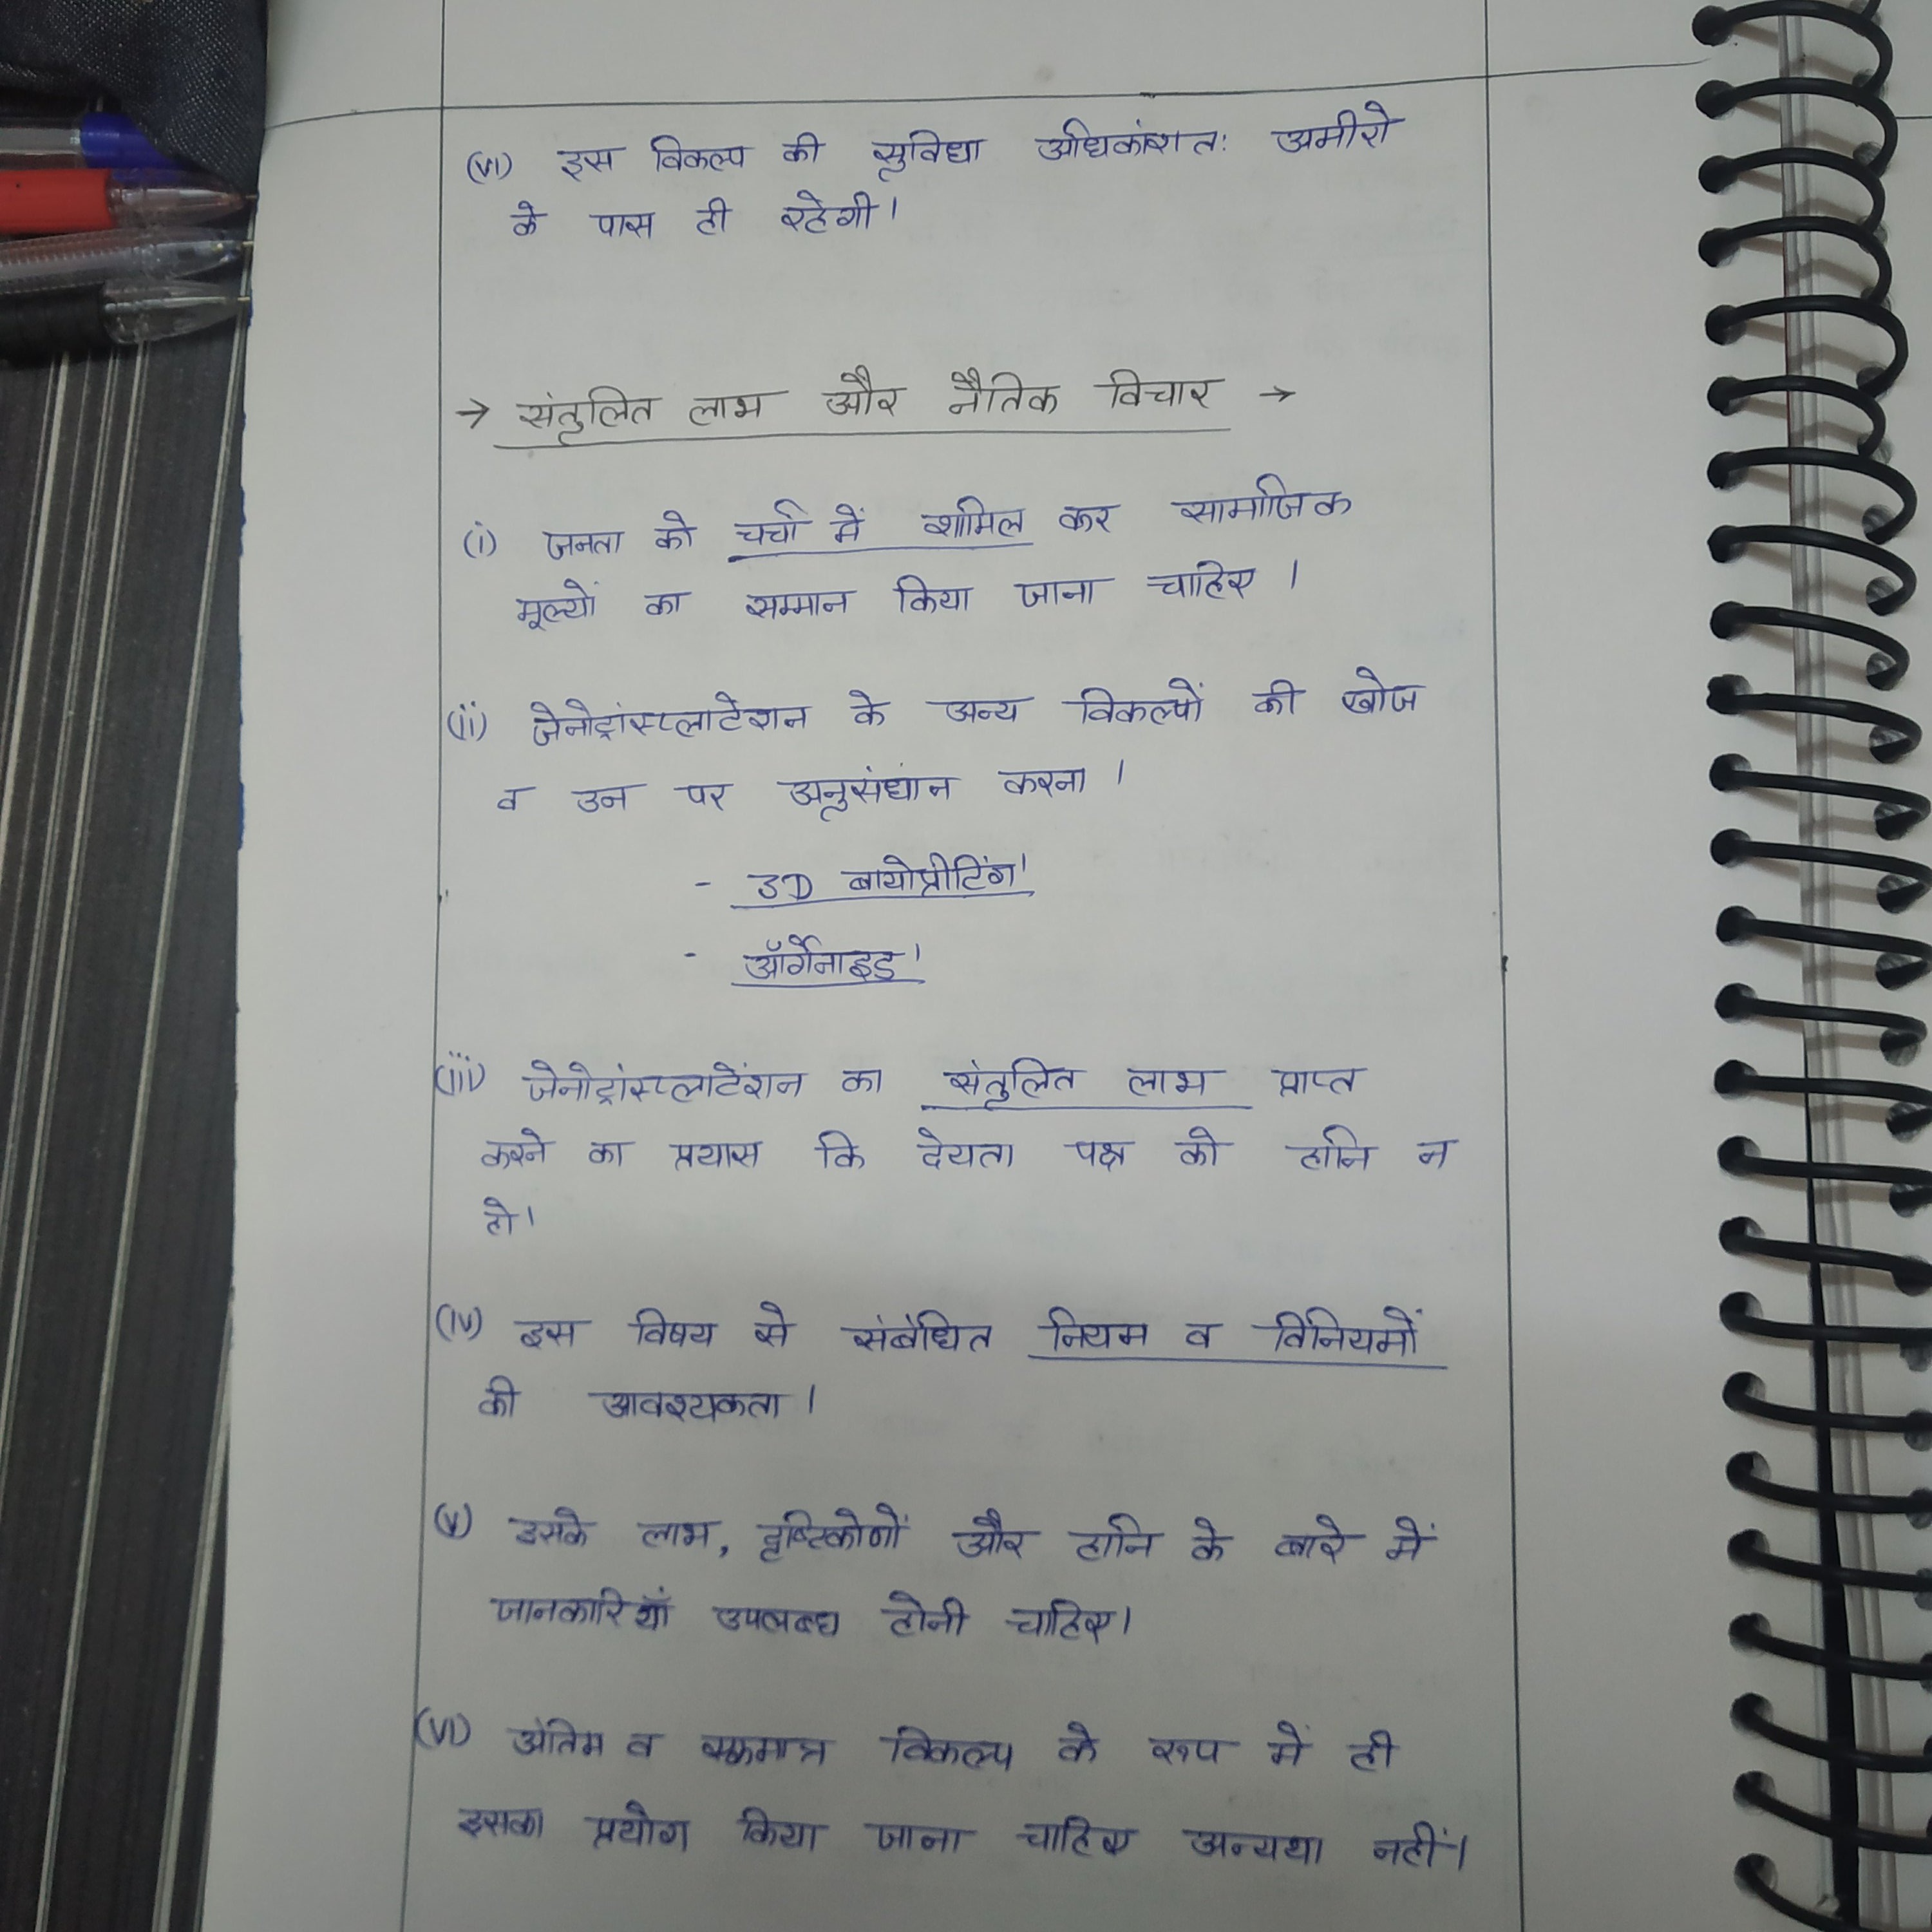 (vi) इस विकल्प की सुविधा अधिकांशतः अमीरो
के पास ही रहेगी।
→ संतुलित लाभ और नैतिक विचार →
(i) जनता को चर्चा में शामिल कर सामाजिक
मूल्यों का सम्मान किया जाना चाहिए।
(ii) जेनोट्रांस्प्लाटेशन के अन्य विकल्पों की खोज
व उन पर अनुसंधान करना।
- 3D बायोप्रीटिंग।
- ऑर्गेनाइड।
(iii) जेनोट्रांस्प्लाटेंशन का संतुलित लाभ प्राप्त
करने का प्रयास कि देयता पक्ष को हानि न
हो।
(iv) इस विषय से संबंधित नियम व विनियमों
की आवश्यकता।
(v) उसके लाभ, दृष्टिकोणों और हानि के बारे में
जानकारियाँ उपलब्ध होनी चाहिए।
(vi) अंतिम व एकमात्र विकल्प के रूप में ही
इसका प्रयोग किया जाना चाहिए अन्यथा नहीं।